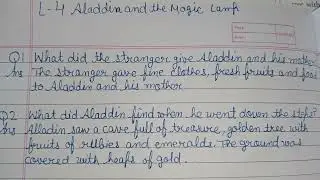 L-4 Aladdin and the Magic Lamp
Q1 What did the stranger give Aladdin and his mother
Ans The stranger gave fine clothes, fresh fruits and food
to Aladdin and his mother
Q2 What did Aladdin find when he went down the steps?
Ans Alladin saw a cave full of treasure, golden tree with
fruits of rubies and emeralds. The ground was
covered with heaps of gold.